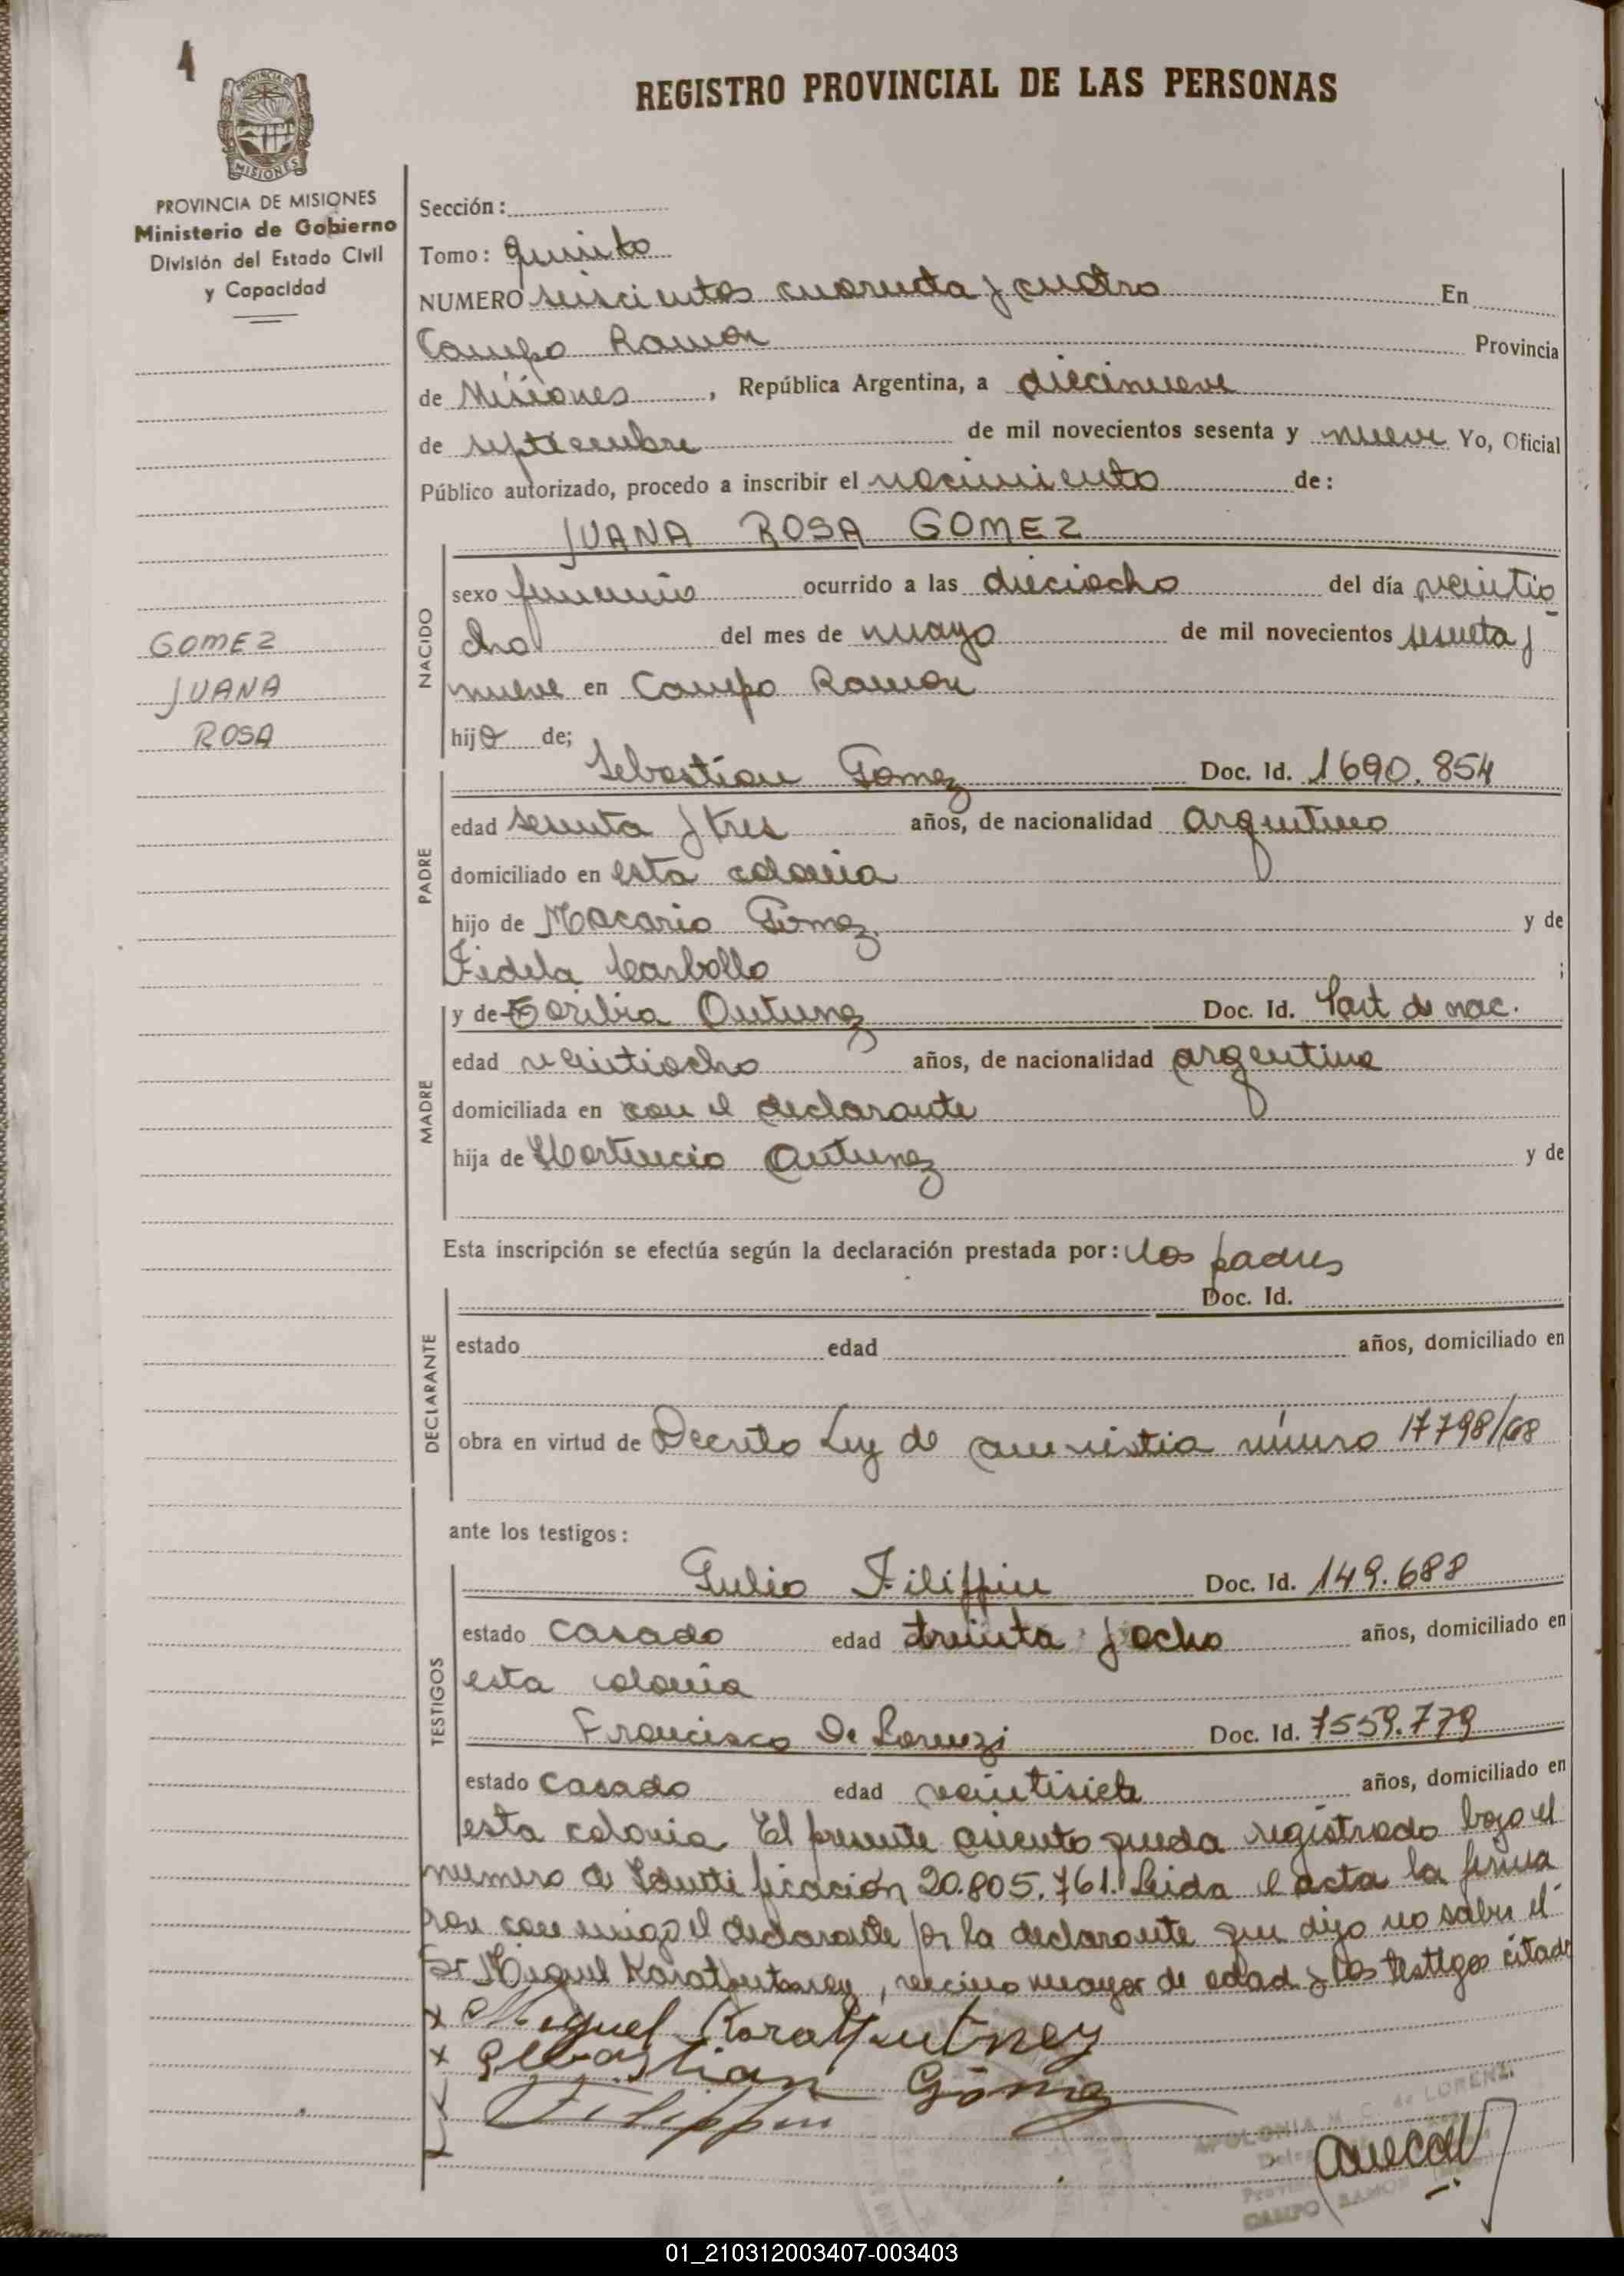 4
REGISTRO PROVINCIAL DE LAS PERSONAS
PROVINCIA DE MISIONES
MISIONES
PROVINCIA DE MISIONES
Ministerio de Gobierno
División del Estado Civil
y Capacidad
GOMEZ
JUANA
ROSA
Sección:
Tomo: quinto
NUMERO seiscientos cuarenta y cuatro En
Campo Ramon Provincia
de Misiones, República Argentina, a diecinueve
de septiembre de mil novecientos sesenta y nueve Yo, Oficial
Público autorizado, procedo a inscribir el nacimiento de:
JUANA ROSA GOMEZ
NACIDO
sexo femenino ocurrido a las dieciocho del día veintio
cho del mes de mayo de mil novecientos sesenta y
nueve en Campo Ramon
hija de;
PADRE
Sebastian Gomez Doc. Id. 1690.854
edad sesenta y tres años, de nacionalidad argentino
domiciliado en esta colonia
hijo de Macario Gomez y de
Fidela Carballo ;
MADRE
y de Toribia Antunez Doc. Id. Part de nac.
edad veintiocho años, de nacionalidad argentina
domiciliada en con el declarante
hija de Hortencio Antunez y de
Esta inscripción se efectúa según la declaración prestada por: los padres
DECLARANTE
Doc. Id.
estado edad años, domiciliado en
obra en virtud de Decreto Ley de amnistia número 17798/68
ante los testigos:
TESTIGOS
Julio Filippin Doc. Id. 149.688
estado casado edad treinta y ocho años, domiciliado en
esta colonia
Francisco De Lorenzi Doc. Id. 7559.779
estado casado edad veintisiete años, domiciliado en
esta colonia El presente asiento queda registrado bajo el
numero de Identificación 20.805.761. Leida el acta la firma
ron conmigo el declarante por la declarante que dijo no saber el
Sr Miguel , vecino mayor de edad y los testigos citados
x Miguel
x Sebastian Gómez
Filippin
APOLONIA M. C. de LORENZI
CAMPO RAMON
01_210312003407-003403